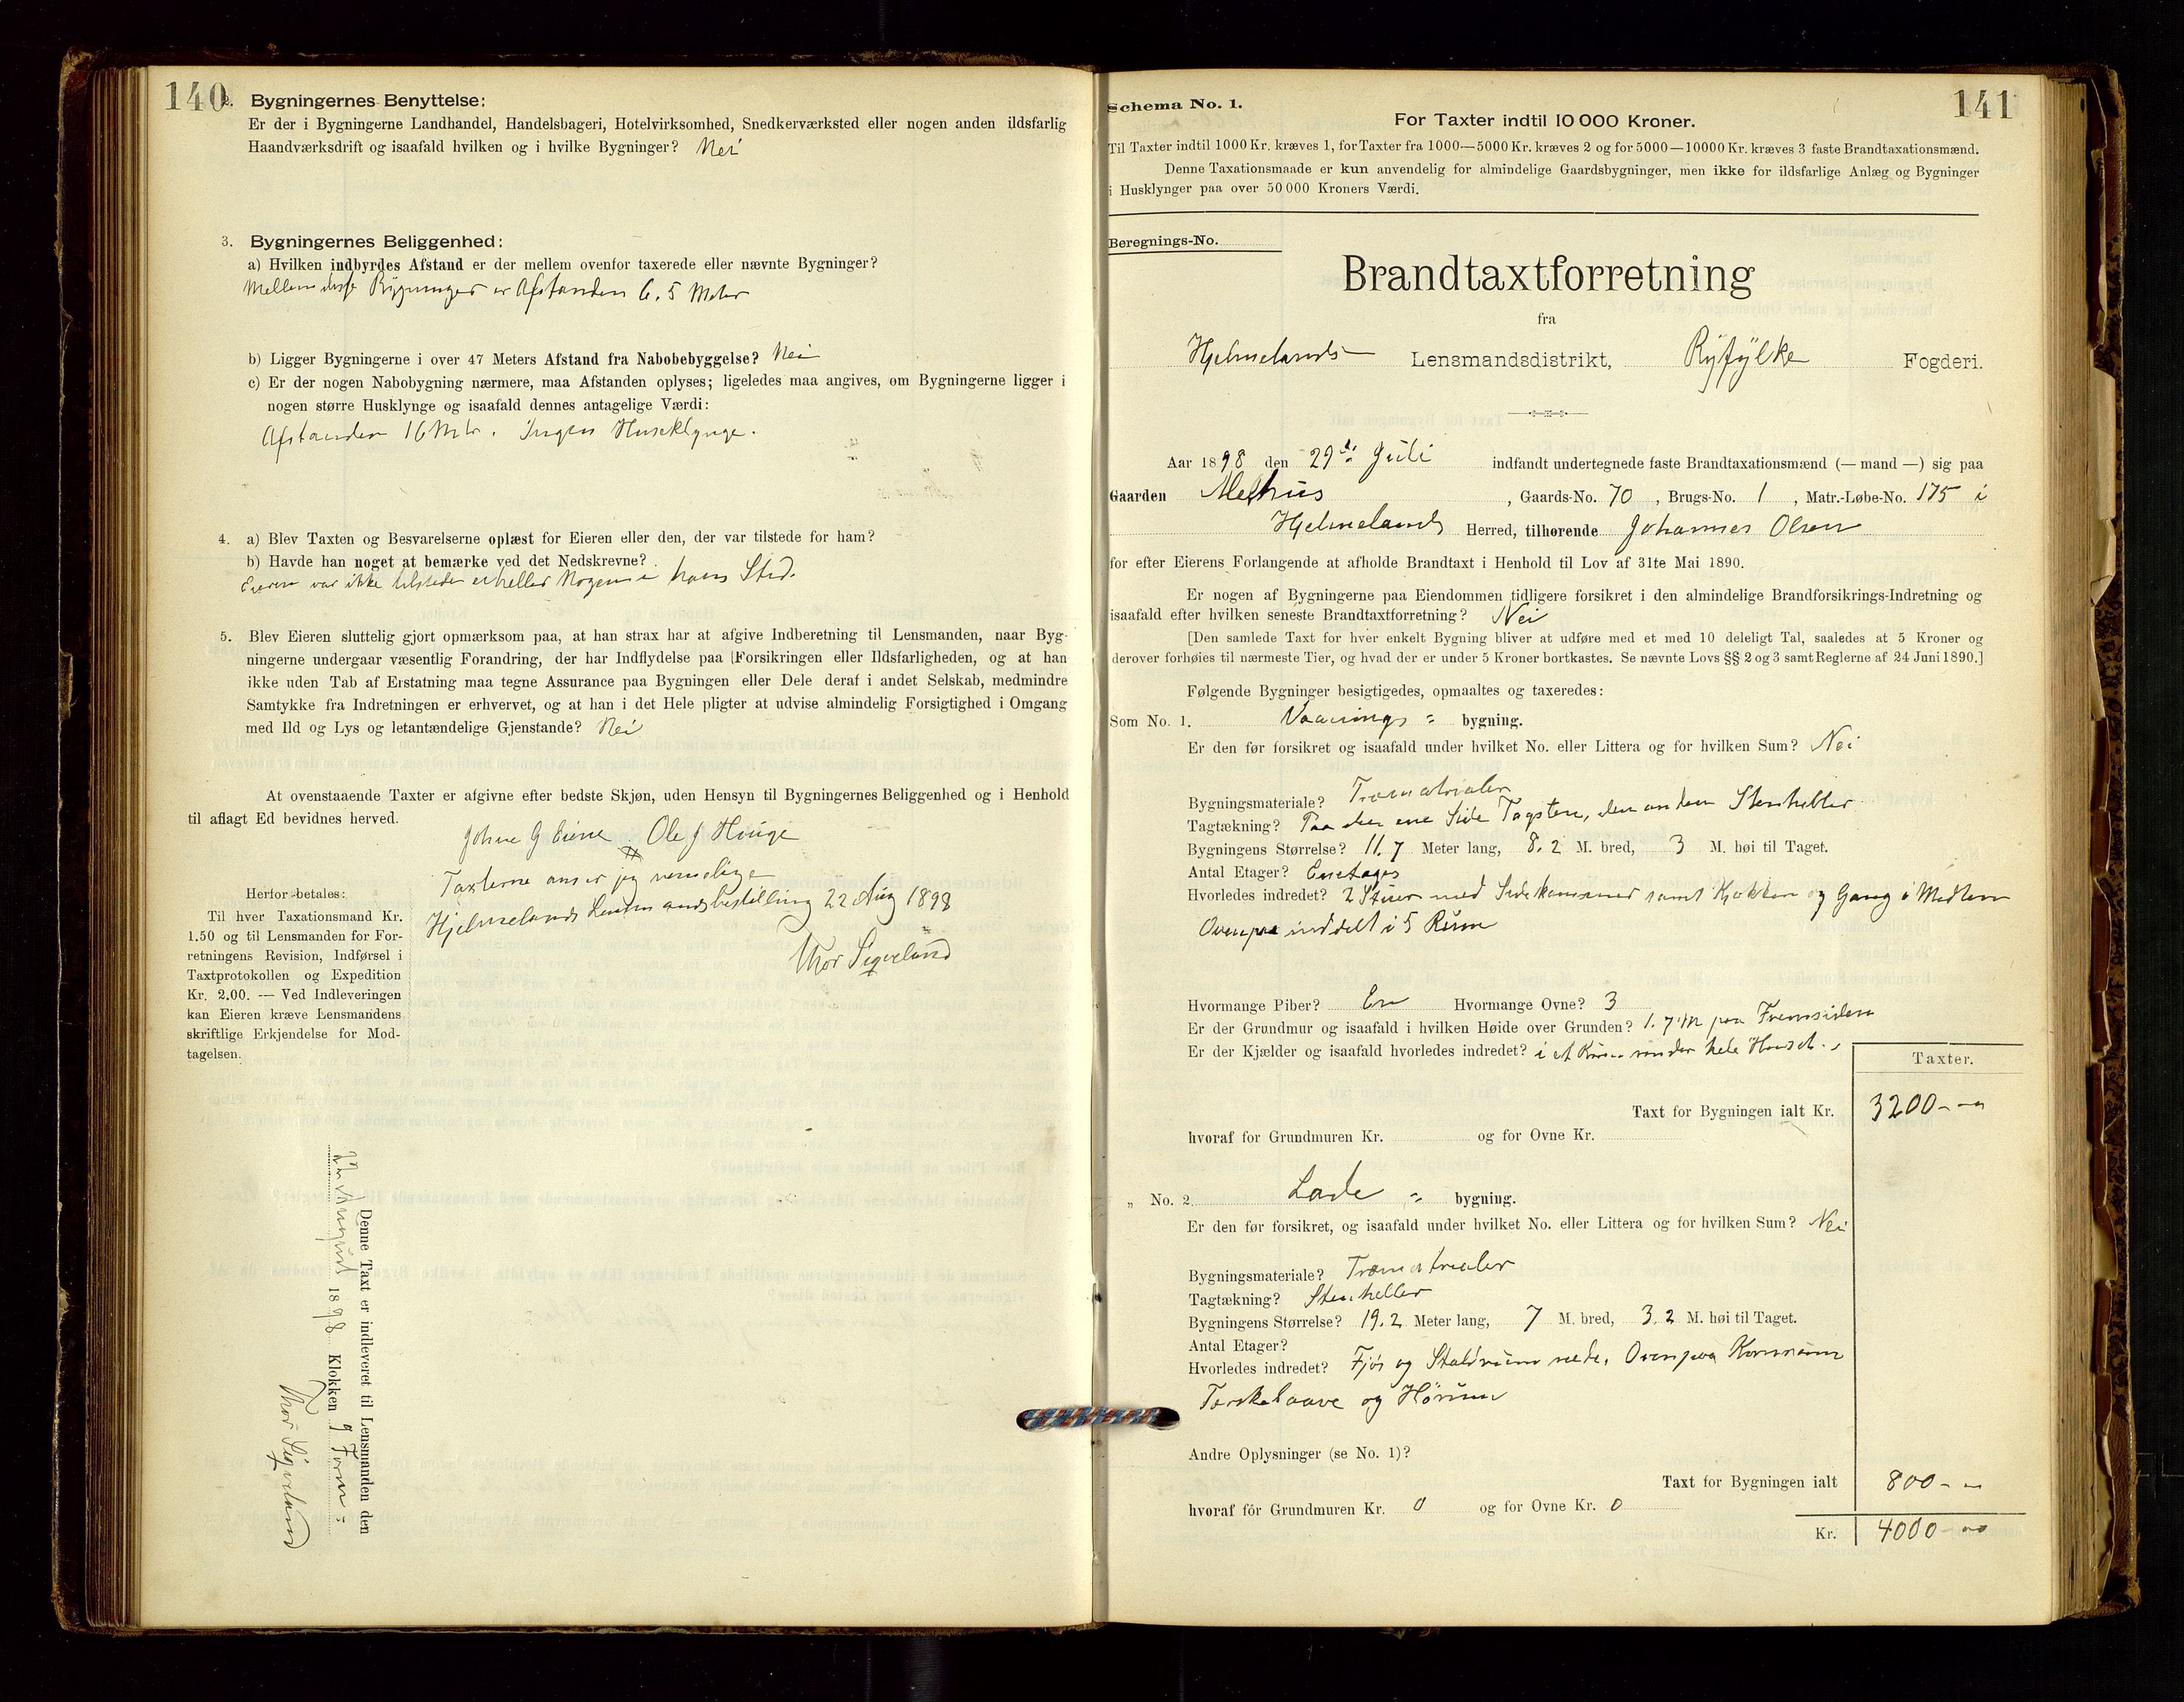 140
2. Bygningernes Benyttelse:
Er der i Bygningerne Landhandel, Handelsbageri, Hotelvirksomhed, Snedkerværksted eller nogen anden ildsfarlig
Haandværksdrift og isaafald hvilken og i hvilke Bygninger? Nei
3. Bygningernes Beliggenhed:
a) Hvilken indbyrdes Afstand er der mellem ovenfor taxerede eller nævnte Bygninger?
Mellem disse Bygninger er Afstanden 6.5 Meter
b) Ligger Bygningerne i over 47 Meters Afstand fra Nabobebyggelse? Nei
c) Er der nogen Nabobygning nærmere, maa Afstanden oplyses; ligeledes maa angives, om Bygningerne ligger i
nogen større Husklynge og isaafald dennes antagelige Værdi:
Afstanden 16 Mtr. Ingen Huseklynge.
4. a) Blev Taxten og Besvarelserne oplæst for Eieren eller den, der var tilstede for ham?
b) Havde han noget at bemærke ved det Nedskrevne?
Eieren var ikke tilstede eiheller Nogen i hans Sted.
5. Blev Eieren sluttelig gjort opmærksom paa, at han strax har at afgive Indberetning til Lensmanden, naar Byg-
ningerne undergaar væsentlig Forandring, der har Indflydelse paa Forsikringen eller Ildsfarligheden, og at han
ikke uden Tab af Erstatning maa tegne Assurance paa Bygningen eller Dele deraf i andet Selskab, medmindre
Samtykke fra Indretningen er erhvervet, og at han i det Hele pligter at udvise almindelig Forsigtighed i Omgang
med Ild og Lys og letantændelige Gjenstande? Nei
At ovenstaaende Taxter er afgivne efter bedste Skjøn, uden Hensyn til Bygningernes Beliggenhed og i Henhold
til aflagt Ed bevidnes herved.
Johne G Eiene Ole J Hauge
Taxterne anser jeg rimelige
Hjelmelands Lensmandsbestilling 22 Aug 1898
Thor Sigveland
Herfor betales:
Til hver Taxationsmand Kr.
1.50 og til Lensmanden for For-
retningens Revision, Indførsel i
Taxtprotokollen og Expedition
Kr. 2.00. — Ved Indleveringen
kan Eieren kræve Lensmandens
skriftlige Erkjendelse for Mod-
tagelsen.
Denne Taxt er indleveret til Lensmanden den
August 1898 Klokken 9 Form:
Thor Sigveland
141
Schema No. 1.
For Taxter indtil 10 000 Kroner.
Til Taxter indtil 1000 Kr. kræves 1, for Taxter fra 1000—5000 Kr. kræves 2 og for 5000—10000 Kr. kræves 3 faste Brandtaxationsmænd.
Denne Taxationsmaade er kun anvendelig for almindelige Gaardsbygninger, men ikke for ildsfarlige Anlæg og Bygninger
i Husklynger paa over 50 000 Kroners Værdi.
Beregnings-No.
Brandtaxtforretning
fra
Hjelmelands Lensmandsdistrikt, Ryfylke Fogderi.
Aar 1898 den 29de Juli indfandt undertegnede faste Brandtaxationsmænd (— mand —) sig paa
Gaarden Melhus, Gaards-No. 70, Brugs-No. 1, Matr.-Løbe-No. 175 i
Hjelmelands Herred, tilhørende Johannes Olsen
for efter Eierens Forlangende at afholde Brandtaxt i Henhold til Lov af 31te Mai 1890.
Er nogen af Bygningerne paa Eiendommen tidligere forsikret i den almindelige Brandforsikrings-Indretning og
isaafald efter hvilken seneste Brandtaxtforretning? Nei
[Den samlede Taxt for hver enkelt Bygning bliver at udføre med et med 10 deleligt Tal, saaledes at 5 Kroner og
derover forhøies til nærmeste Tier, og hvad der er under 5 Kroner bortkastes. Se nævnte Lovs §§ 2 og 3 samt Reglerne af 24 Juni 1890.]
Følgende Bygninger besigtigedes, opmaaltes og taxeredes:
Som No. 1. Vaanings - bygning.
Er den før forsikret og isaafald under hvilket No. eller Littera og for hvilken Sum? Nei
Bygningsmateriale? Træmaterialer
Tagtækning? Paa den ene Side Tagsten, den anden Stenheller
Bygningens Størrelse? 11.7 Meter lang, 8.2 M. bred, 3 M. høi til Taget.
Antal Etager? Enetages
Hvorledes indredet? 2 Stuer med Sidekammer samt Kjøkken og Gang i Mellem
Ovenpaa inddelt i 5 Rum
Hvormange Piber? En Hvormange Ovne? 3
Er der Grundmur og isaafald i hvilken Høide over Grunden? 1.7 M paa Fremsiden
Er der Kjælder og isaafald hvorledes indredet? i et Rum under hele Huset.
Taxter.
Taxt for Bygningen ialt Kr. 3200 - -
hvoraf for Grundmuren Kr. og for Ovne Kr.
„ No. 2. Lade - bygning.
Er den før forsikret, og isaafald under hvilket No. eller Littera og for hvilken Sum? Nei
Bygningsmateriale? Træmaterialer
Tagtækning? Stenheller
Bygningens Størrelse? 19.2 Meter lang, 7 M. bred, 3.2 M. høi til Taget.
Antal Etager?
Hvorledes indredet? Fjøs og Staldrum nede. Ovenpaa Kornrum
Tærskelaave og Hørum
Andre Oplysninger (se No. 1)?
Taxt for Bygningen ialt 800 - -
hvoraf for Grundmuren Kr. 0 og for Ovne Kr. 0
Kr. 4000 - 00